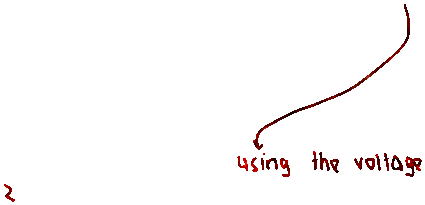 using the voltage
2